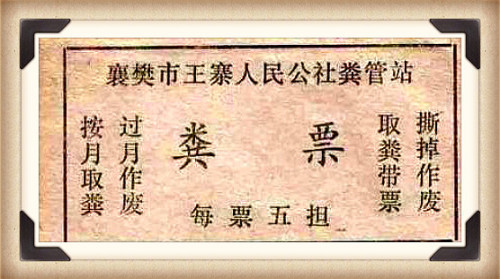 襄樊市王寨人民公社粪管站
撕掉作废
取粪带票
粪票
过月作废
按月取粪
每票五担